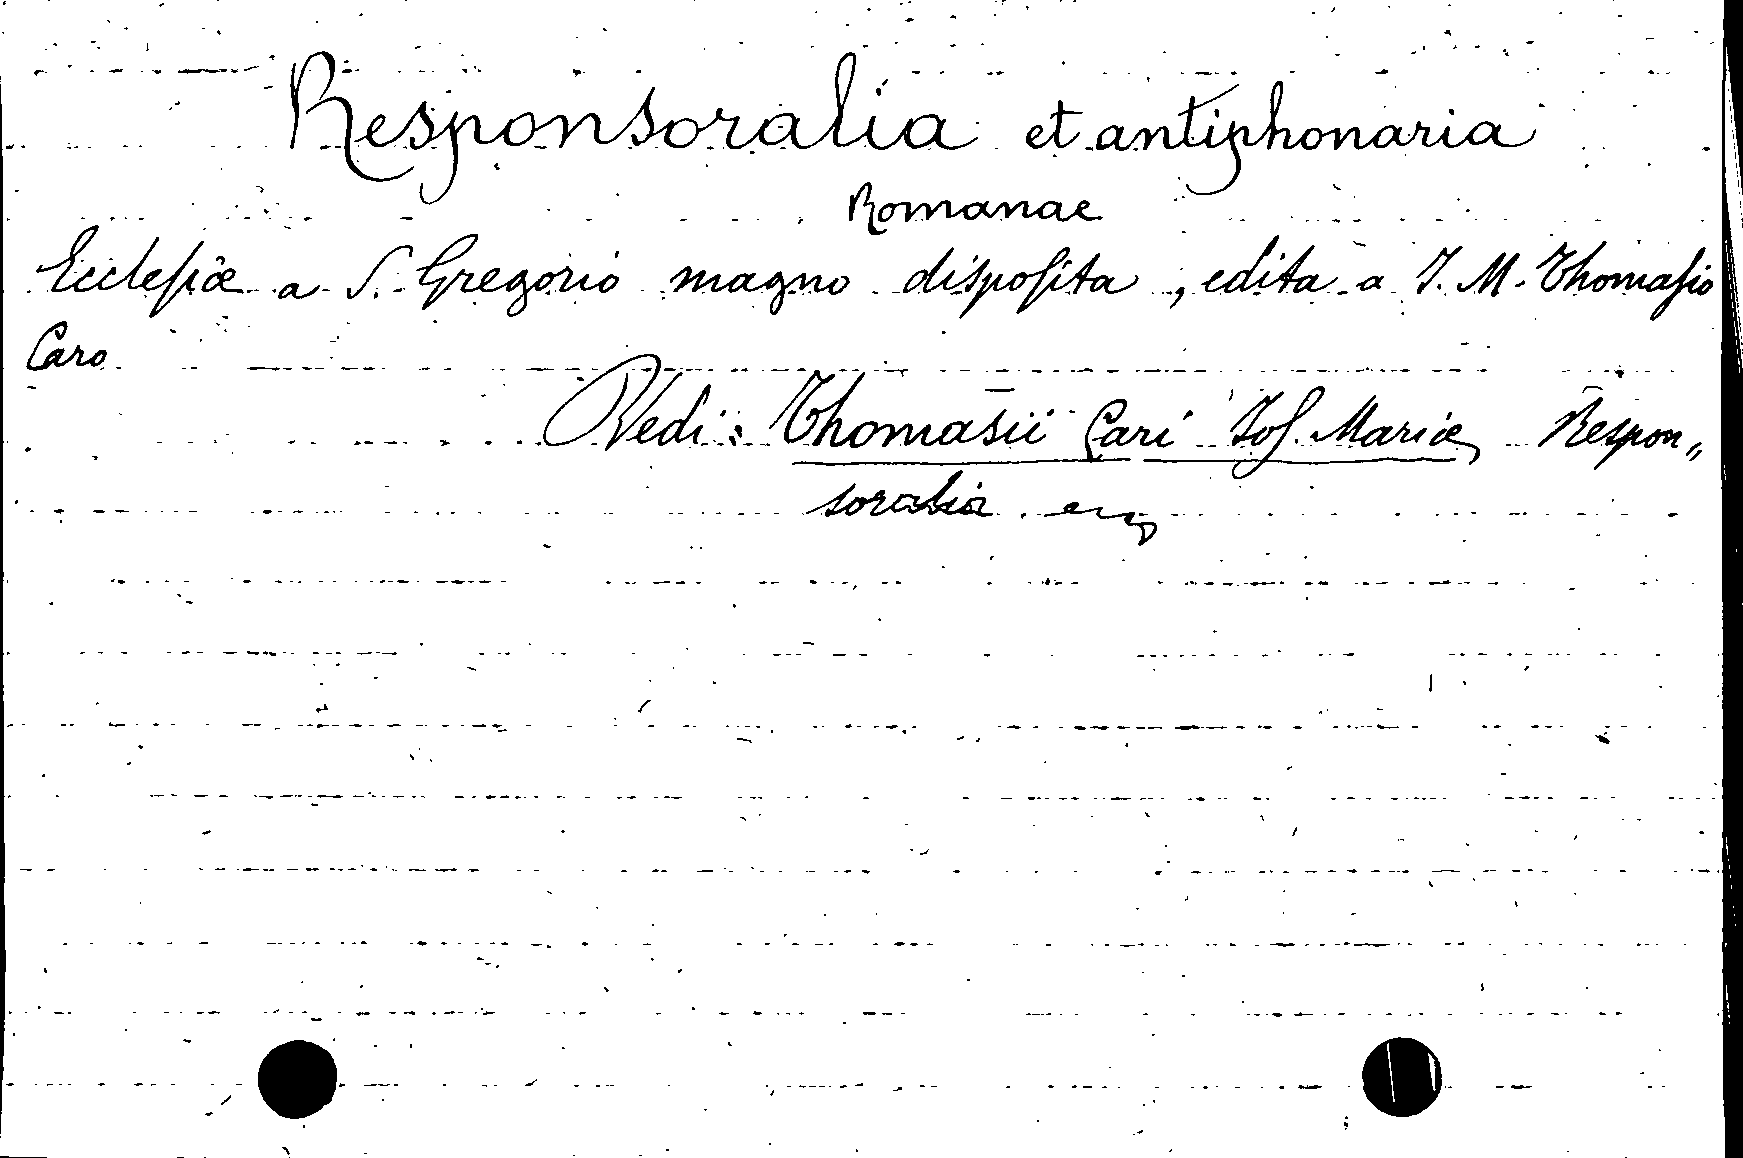 Responsoralia et antiphonaria
Romanae
Ecclesiæ a S. Gregorio magno disposita, edita a J. M. Thomasio
Caro
Vedi: Thomasii Cari Jos. Mariæ, Respon„
soralia.